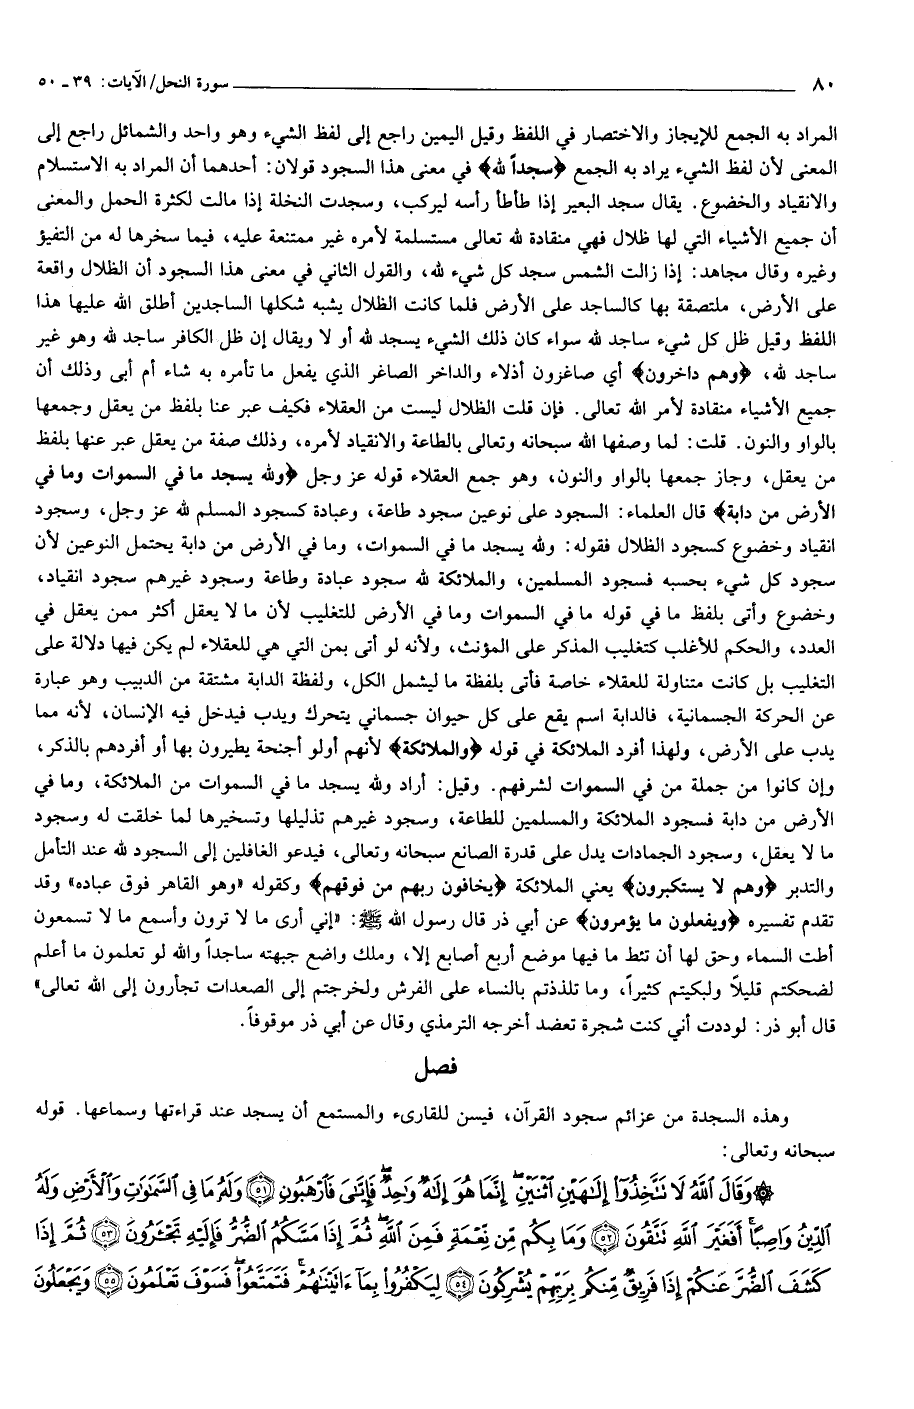 ٨٠ سورة النحل/ الآيات: ٣٩ ـ ٥٠
المراد به الجمع للإيجاز والاختصار في اللفظ وقيل اليمين راجع إلى لفظ الشيء وهو واحد والشمائل راجع إلى
المعنى لأن لفظ الشيء يراد به الجمع ﴿سجداً لله﴾ في معنى هذا السجود قولان: أحدهما أن المراد به الاستسلام
والانقياد والخضوع. يقال سجد البعير إذا طأطأ رأسه ليركب، وسجدت النخلة إذا مالت لكثرة الحمل والمعنى
أن جميع الأشياء التي لها ظلال فهي منقادة لله تعالى مستسلمة لأمره غير ممتنعة عليه، فيما سخرها له من التفيؤ
وغيره وقال مجاهد: إذا زالت الشمس سجد كل شيء لله، والقول الثاني في معنى هذا السجود أن الظلال واقعة
على الأرض، ملتصقة بها كالساجد على الأرض فلما كانت الظلال يشبه شكلها الساجدين أطلق الله عليها هذا
اللفظ وقيل ظل كل شيء ساجد لله سواء كان ذلك الشيء يسجد لله أو لا ويقال إن ظل الكافر ساجد لله وهو غير
ساجد لله، ﴿وهم داخرون﴾ أي صاغزون أذلاء والداخر الصاغر الذي يفعل ما تأمره به شاء أم أبى وذلك أن
جميع الأشياء منقادة لأمر الله تعالى. فإن قلت الظلال ليست من العقلاء فكيف عبر عنا بلفظ من يعقل وجمعها
بالواو والنون. قلت: لما وصفها الله سبحانه وتعالى بالطاعة والانقياد لأمره، وذلك صفة من يعقل عبر عنها بلفظ
من يعقل، وجاز جمعها بالواو والنون، وهو جمع العقلاء قوله عز وجل ﴿ولله يسجد ما في السموات وما في
الأرض من دابة﴾ قال العلماء: السجود على نوعين سجود طاعة، وعبادة كسجود المسلم لله عز وجل، وسجود
انقياد وخضوع كسجود الظلال فقوله: ولله يسجد ما في السموات، وما في الأرض من دابة يحتمل النوعين لأن
سجود كل شيء بحسبه فسجود المسلمين، والملائكة لله سجود عبادة وطاعة وسجود غيرهم سجود انقياد،
وخضوع وأتى بلفظ ما في قوله ما في السموات وما في الأرض للتغليب لأن ما لا يعقل أكثر ممن يعقل في
العدد، والحكم للأغلب كتغليب المذكر على المؤنث، ولأنه لو أتى بمن التي هي للعقلاء لم يكن فيها دلالة على
التغليب بل كانت متناولة للعقلاء خاصة فأتى بلفظة ما ليشمل الكل، ولفظة الدابة مشتقة من الدبيب وهو عبارة
عن الحركة الجسمانية، فالدابة اسم يقع على كل حيوان جسماني يتحرك ويدب فيدخل فيه الإنسان، لأنه مما
يدب على الأرض، ولهذا أفرد الملائكة في قوله ﴿والملائكة﴾ لأنهم أولو أجنحة يطيرون بها أو أفردهم بالذكر،
وإن كانوا من جملة من في السموات لشرفهم. وقيل: أراد ولله يسجد ما في السموات من الملائكة، وما في
الأرض من دابة فسجود الملائكة والمسلمين للطاعة، وسجود غيرهم تذليلها وتسخيرها لما خلقت له وسجود
ما لا يعقل، وسجود الجمادات يدل على قدرة الصانع سبحانه وتعالى، فيدعو الغافلين إلى السجود لله عند التأمل
والتدبر ﴿وهم لا يستكبرون﴾ يعني الملائكة ﴿يخافون ربهم من فوقهم﴾ وكقوله «وهو القاهر فوق عباده» وقد
تقدم تفسيره ﴿ويفعلون ما يؤمرون﴾ عن أبي ذر قال رسول الله ﷺ: «إني أرى ما لا ترون وأسمع ما لا تسمعون
أطت السماء وحق لها أن تئط ما فيها موضع أربع أصابع إلا، وملك واضع جبهته ساجداً والله لو تعلمون ما أعلم
لضحكتم قليلاً ولبكيتم كثيراً، وما تلذذتم بالنساء على الفرش ولخرجتم إلى الصعدات تجأرون إلى الله تعالى»
قال أبو ذر: لوددت أني كنت شجرة تعضد أخرجه الترمذي وقال عن أبي ذر موقوفاً.
فصل
وهذه السجدة من عزائم سجود القرآن، فيسن للقارىء والمستمع أن يسجد عند قراءتها وسماعها. قوله
سبحانه وتعالى:
۞ وَقَالَ ٱللَّهُ لَا تَتَّخِذُوٓا۟ إِلَٰهَيْنِ ٱثْنَيْنِ ۖ إِنَّمَا هُوَ إِلَٰهٌ وَٰحِدٌ ۖ فَإِيَّٰىَ فَٱرْهَبُونِ ﴿٥١﴾ وَلَهُۥ مَا فِى ٱلسَّمَٰوَٰتِ وَٱلْأَرْضِ وَلَهُ
ٱلدِّينُ وَاصِبًا ۚ أَفَغَيْرَ ٱللَّهِ تَتَّقُونَ ﴿٥٢﴾ وَمَا بِكُم مِّن نِّعْمَةٍ فَمِنَ ٱللَّهِ ۖ ثُمَّ إِذَا مَسَّكُمُ ٱلضُّرُّ فَإِلَيْهِ تَجْـَٔرُونَ ﴿٥٣﴾ ثُمَّ إِذَا
كَشَفَ ٱلضُّرَّ عَنكُمْ إِذَا فَرِيقٌ مِّنكُم بِرَبِّهِمْ يُشْرِكُونَ ﴿٥٤﴾ لِيَكْفُرُوا۟ بِمَآ ءَاتَيْنَٰهُمْ ۚ فَتَمَتَّعُوا۟ ۖ فَسَوْفَ تَعْلَمُونَ ﴿٥٥﴾ وَيَجْعَلُونَ